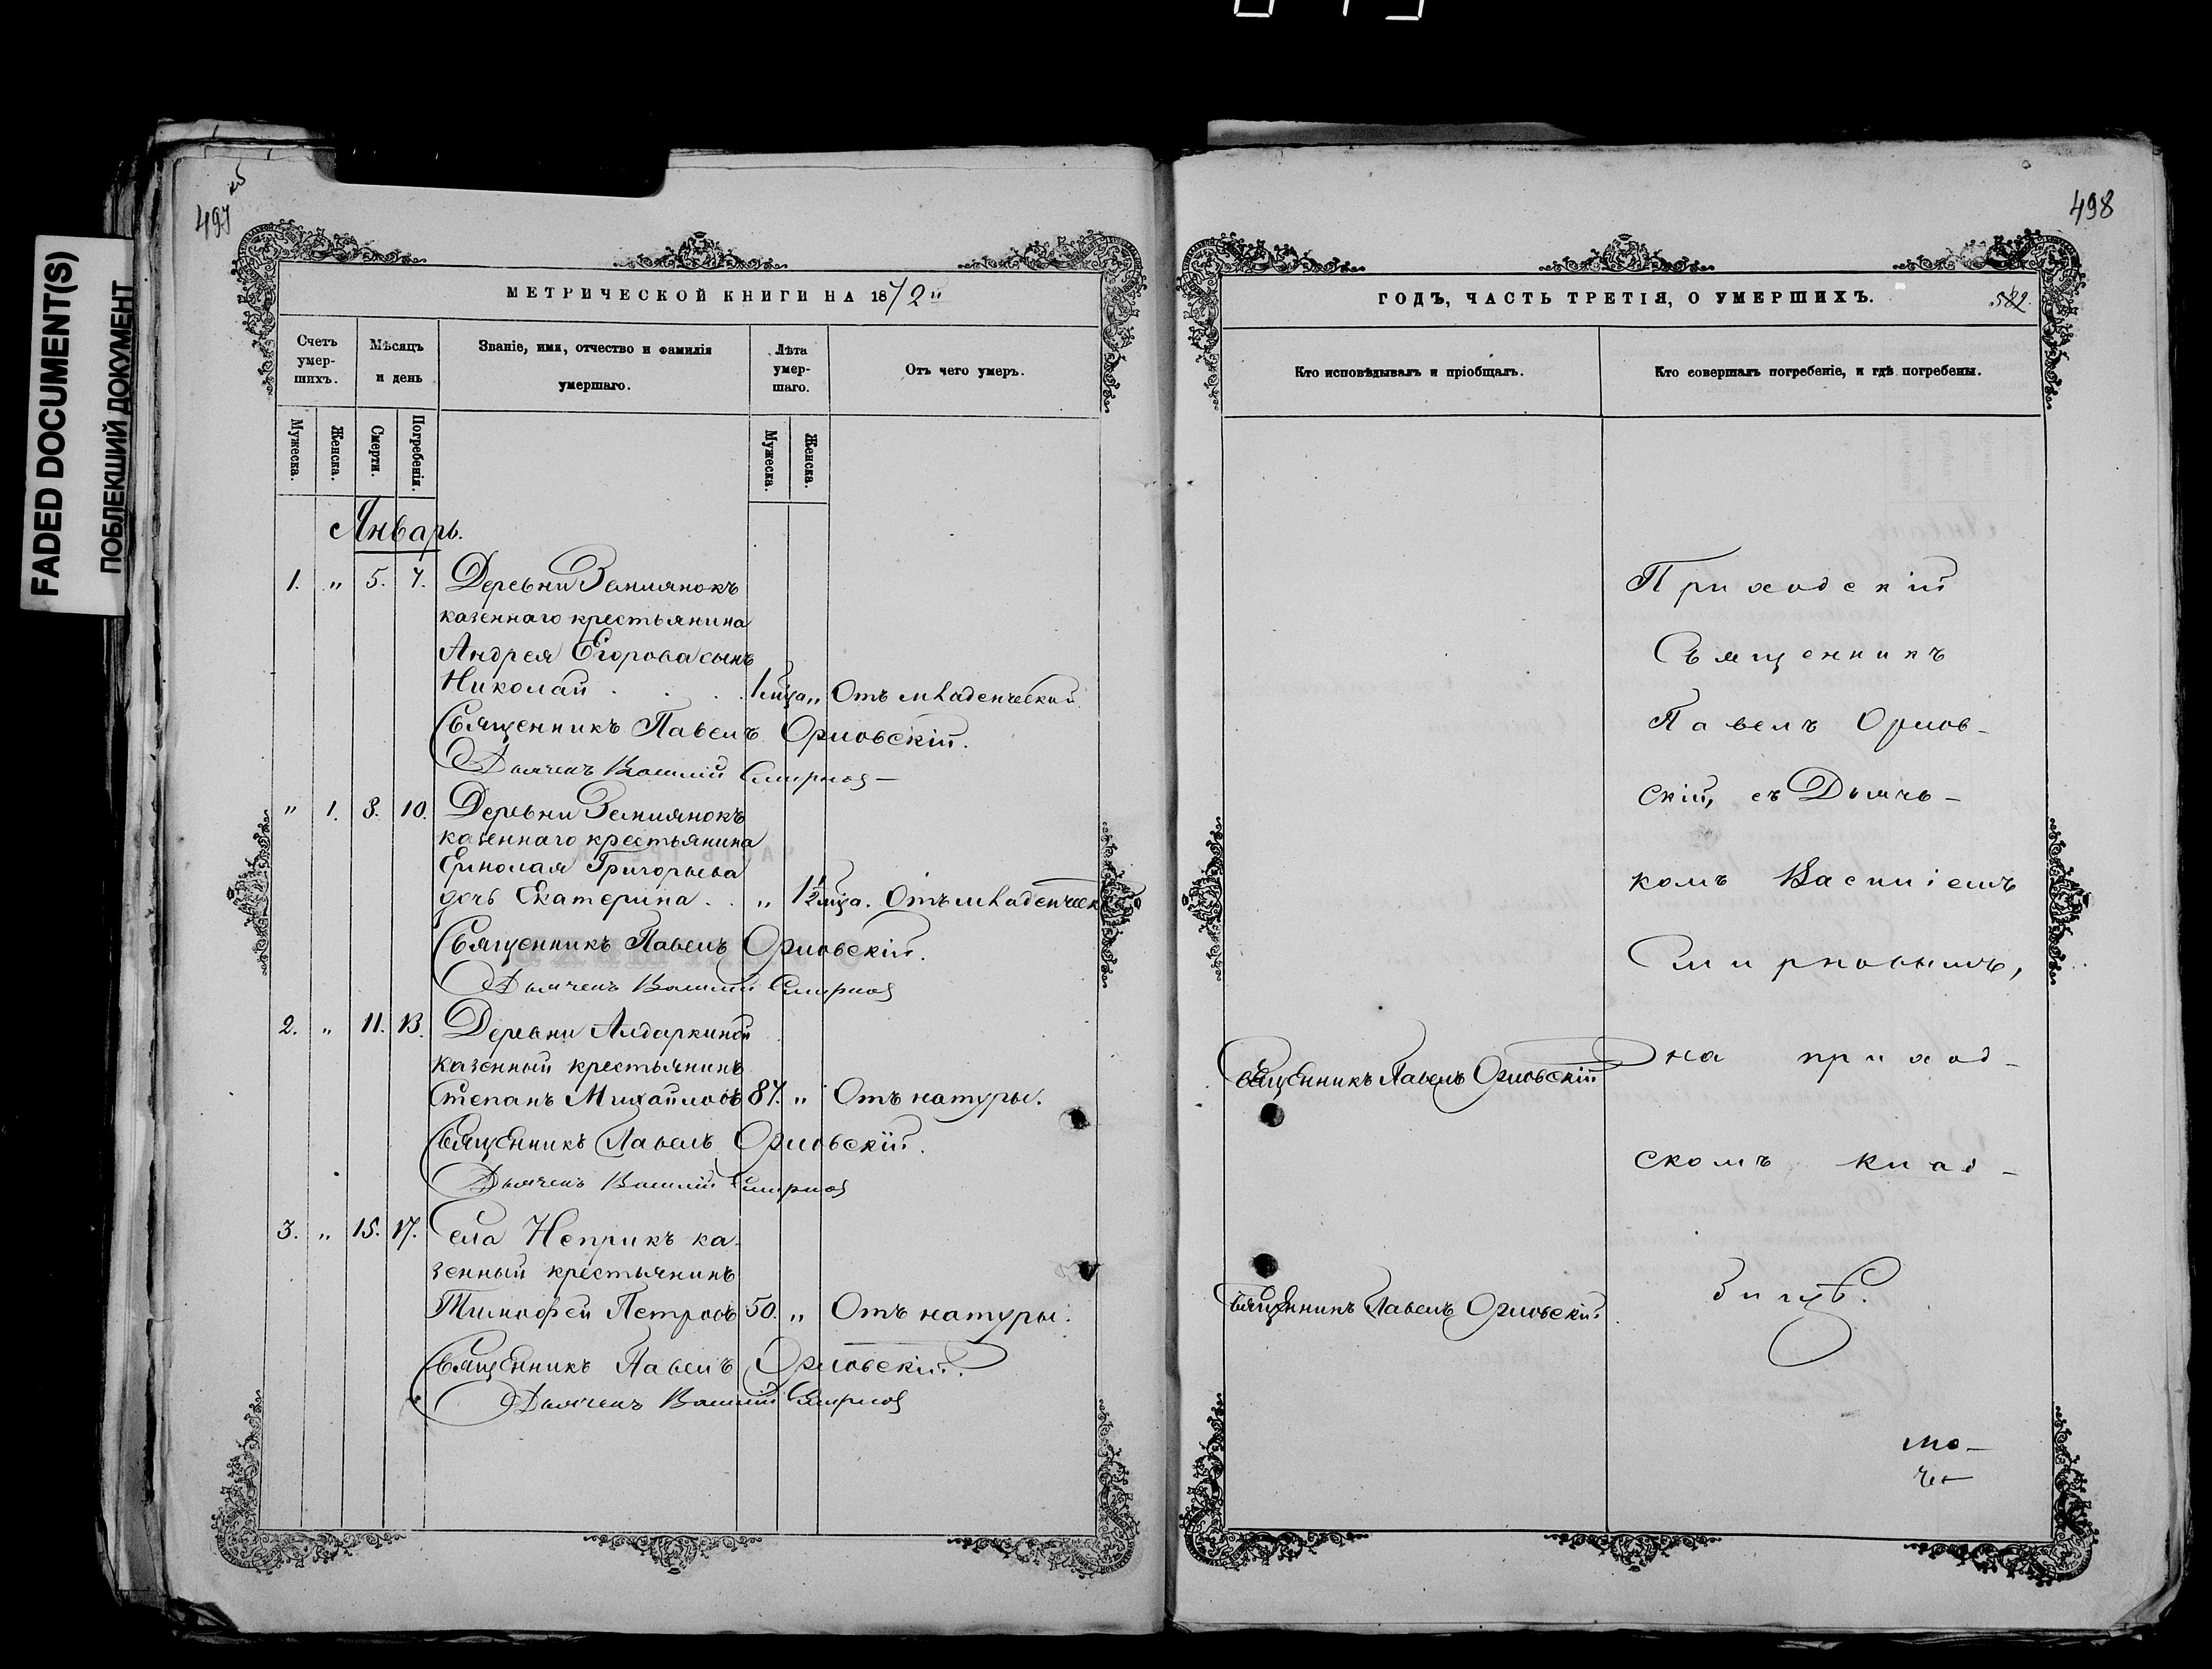 FADED DOCUMENT(S)
ПОБЛЕКШИЙ ДОКУМЕНТ
497
МЕТРИЧЕСКОЙ КНИГИ НА 1872 й
Счетъ умер-шихъ.
Мѣсяцъ и день
Званіе, имя, отчество и фамилія умершаго.
Лѣта умер-шаго.
Отъ чего умеръ.
Мужеска.
Женска.
Смерти.
Погребенія.
Мужеска.
Женска.
Январь.
1. " 5. 7. Деревни Землянокъ
казеннаго крестьянина
Андрея Егорова сынъ
Николай . . . 1 мѣца " Отъ младенческой
Священникъ Павелъ Орловскій.
Дьячекъ Василій Смирнов
" 1. 8. 10. Деревни Землянокъ
казеннаго крестьянина
Ермолая Григорьева
дочь Екатерина . . " 1 1/2 мѣца. Отъ младенческ
Священникъ Павелъ Орловскій.
Дьячекъ Василій Смирнов
2. " 11. 13. Деревни Алдаркиной
казенный крестьянинъ
Степанъ Михайловъ 87. " Отъ натуры.
Священникъ Павелъ Орловскій.
Дьячекъ Василій Смирнов
3. " 15. 17. Села Неприкъ ка-
зенный крестьянинъ
Тимофей Петровъ 50. " Отъ натуры.
Священникъ Павелъ Орловскій.
Дьячекъ Василій Смирнов
498
ГОДЪ, ЧАСТЬ ТРЕТІЯ, О УМЕРШИХЪ.
582.
Кто исповѣдывалъ и пріобщалъ.
Кто совершалъ погребеніе, и гдѣ погребены.
Приходскій
Священникъ
Павелъ Орлов-
скій, съ Дьячь-
комъ Василіемъ
Смирновымъ,
Священникъ Павелъ Орловскій
на приход-
скомъ клад-
Священникъ Павелъ Орловскій
бищѣ.